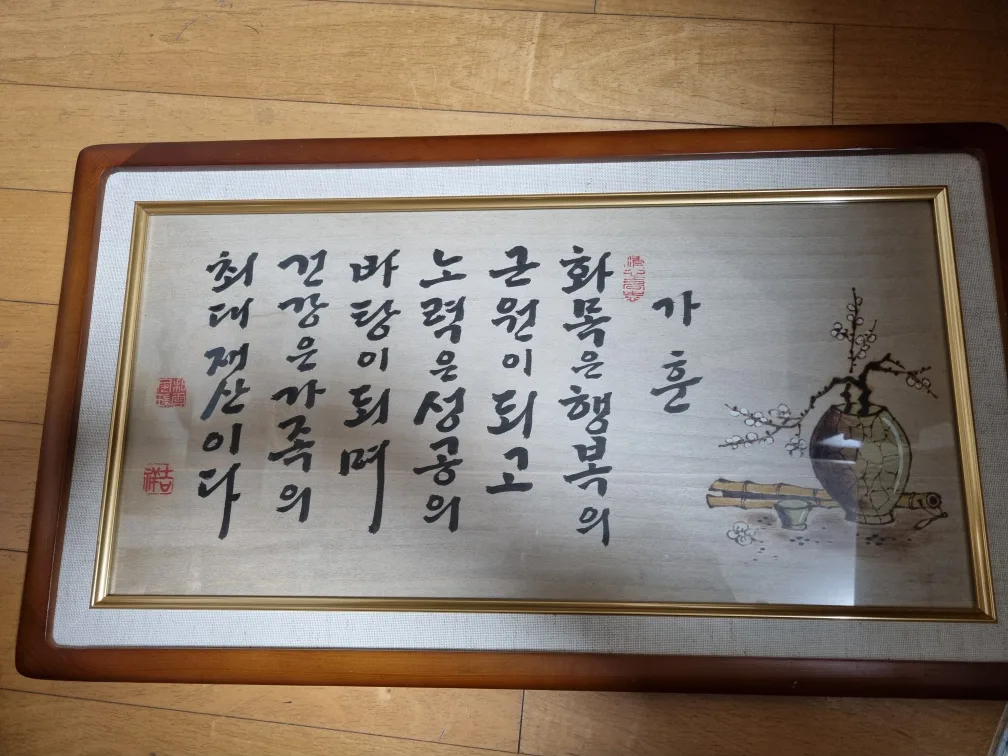 가훈
화목은행복의
근원이되고
노력은성공의
바탕이되며
건강은가족의
최대재산이다